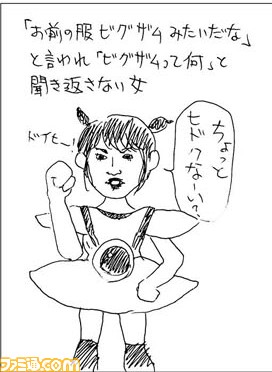 「お前の服ビグザムみたいだな」
と言われ「ビグザムって何」と
聞き返さない女
ドイヒー!
ちょっと
ヒドクなーい?
ファミ通.com